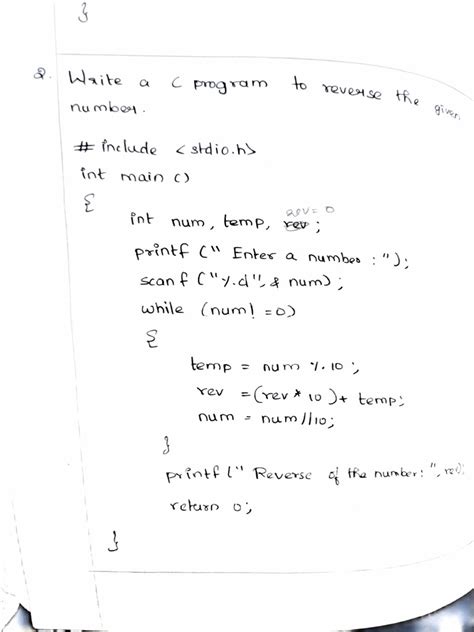 }
2. Write a C program to reverse the given
number.
# include <stdio.h>
int main ()
{
rev = 0
int num, temp, rev ;
printf (" Enter a number : ");
scanf ("%d", & num) ;
while (num! =0)
{
temp = num % 10 ;
rev = (rev * 10 ) + temp;
num = num//10;
}
printf (" Reverse of the number: ", rev);
return 0;
}